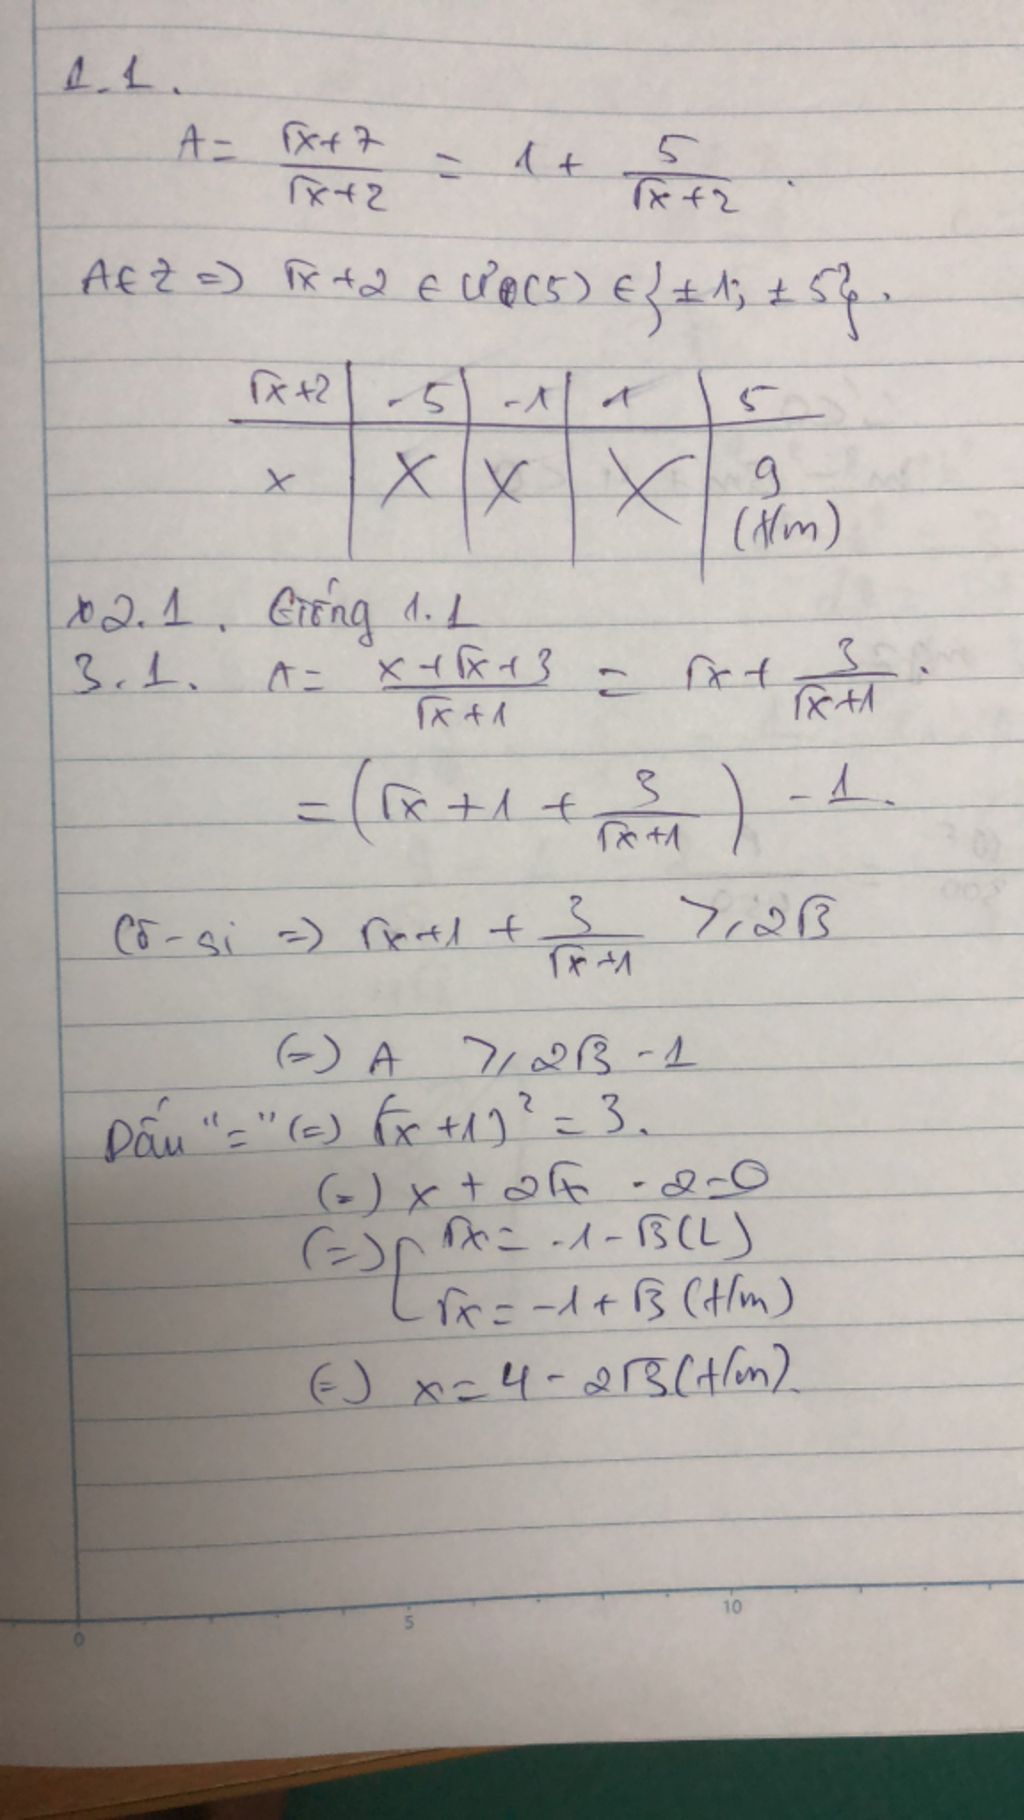 1.1.
A = √x+7 / √x+2 = 1 + 5 / √x+2 .
A∈Z => √x+2 ∈ Ư(5) ∈ {±1; ±5}.
√x+2 | -5 | -1 | 1 | 5
x | X | X | X | 9 (t/m)
2.1. Giống 1.1
3.1. A = x+√x+3 / √x+1 = √x + 3 / √x+1 .
= (√x + 1 + 3 / √x+1) - 1.
Cô-si => √x+1 + 3 / √x+1 ≥ 2√3
(=) A ≥ 2√3 - 1
Dấu "=" (=) (√x+1)² = 3.
(=) x + 2√x - 2=0
(=) [ √x = -1-√3 (L)
√x = -1+√3 (t/m)
(=) x = 4 - 2√3 (t/m).
0 5 10